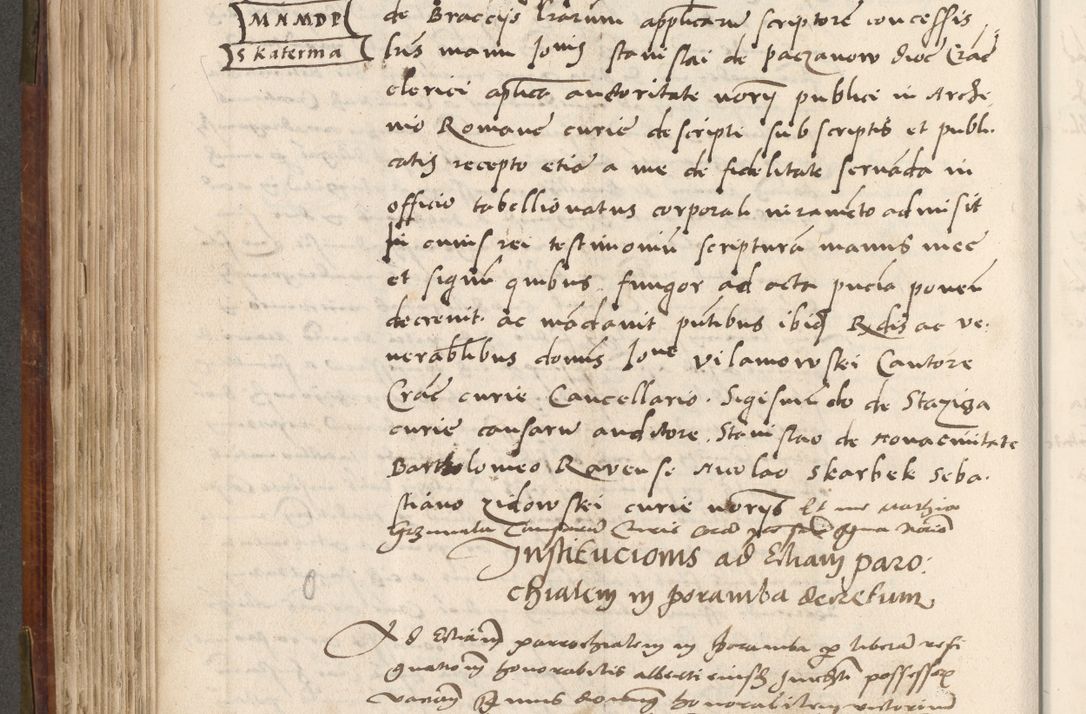 MNMDP
S katerina
de Braccijs lrarum applicaru scriptore concessis
lris manu Jonis stanislai de paczanow dioc Crac
clerici aplica auctoritate norij publici in Arche
nio Romane curie descripti subscriptis et publi
catis recepto etia a me de fidelitate servada in
officio tabellionatus corporali iurameto admisit
In cuius rei testimoniu scriptura manus mee
et signu quibus fungor ad acta pncia poneri
decrevit ac madavit pntibus ibidem Rdis ac ve
nerablibus domis Jone vilamowski Cantore
Crac curie Cancellario Sigismudo de Stazicza
curie causaru auditore Stanislao de nova civitate
Bartholomeo Ravense nicolao skarbek seba
stiano zidowski curie norijs Et me Mathia
Causaru Curie Crac
Institucionis ad ecliam paro
chialem in poramba decretum
Ad ecliam parrochialem in poramba p libera resi
gnationem honorabilis alberti eiusdem possessor
vacan honorabilem victorinu